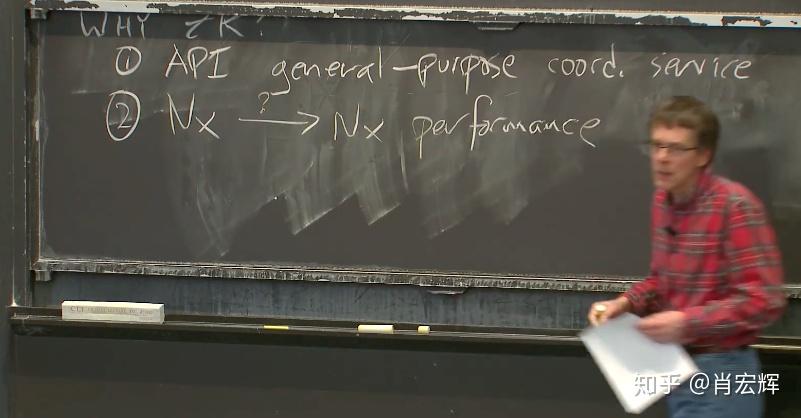 WHY ZK?
① API general-purpose coord. service
② Nx —?→ Nx performance
知乎 @肖宏辉